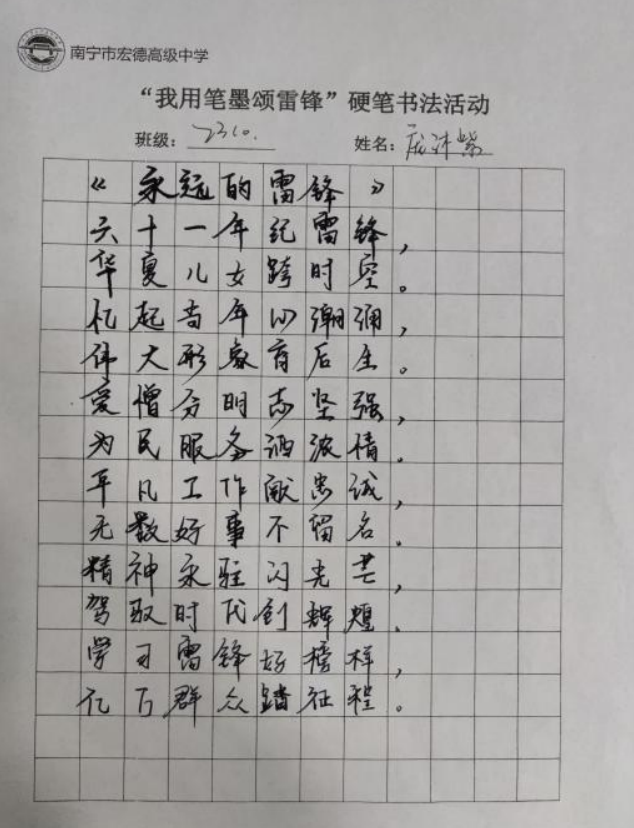 南宁市宏德高级中学
“我用笔墨颂雷锋”硬笔书法活动
班级: 2310. 姓名: 庞
《永远的雷锋》
六十一年纪雷锋,
华夏儿女跨时空。
忆起当年心潮涌,
伟大形象育后生。
爱憎分明志坚强,
为民服务洒浓情。
平凡工作献忠诚,
无数好事不留名.
精神永驻闪光芒,
驾驭时代创辉煌.
学习雷锋好榜样,
亿万群众踏征程。